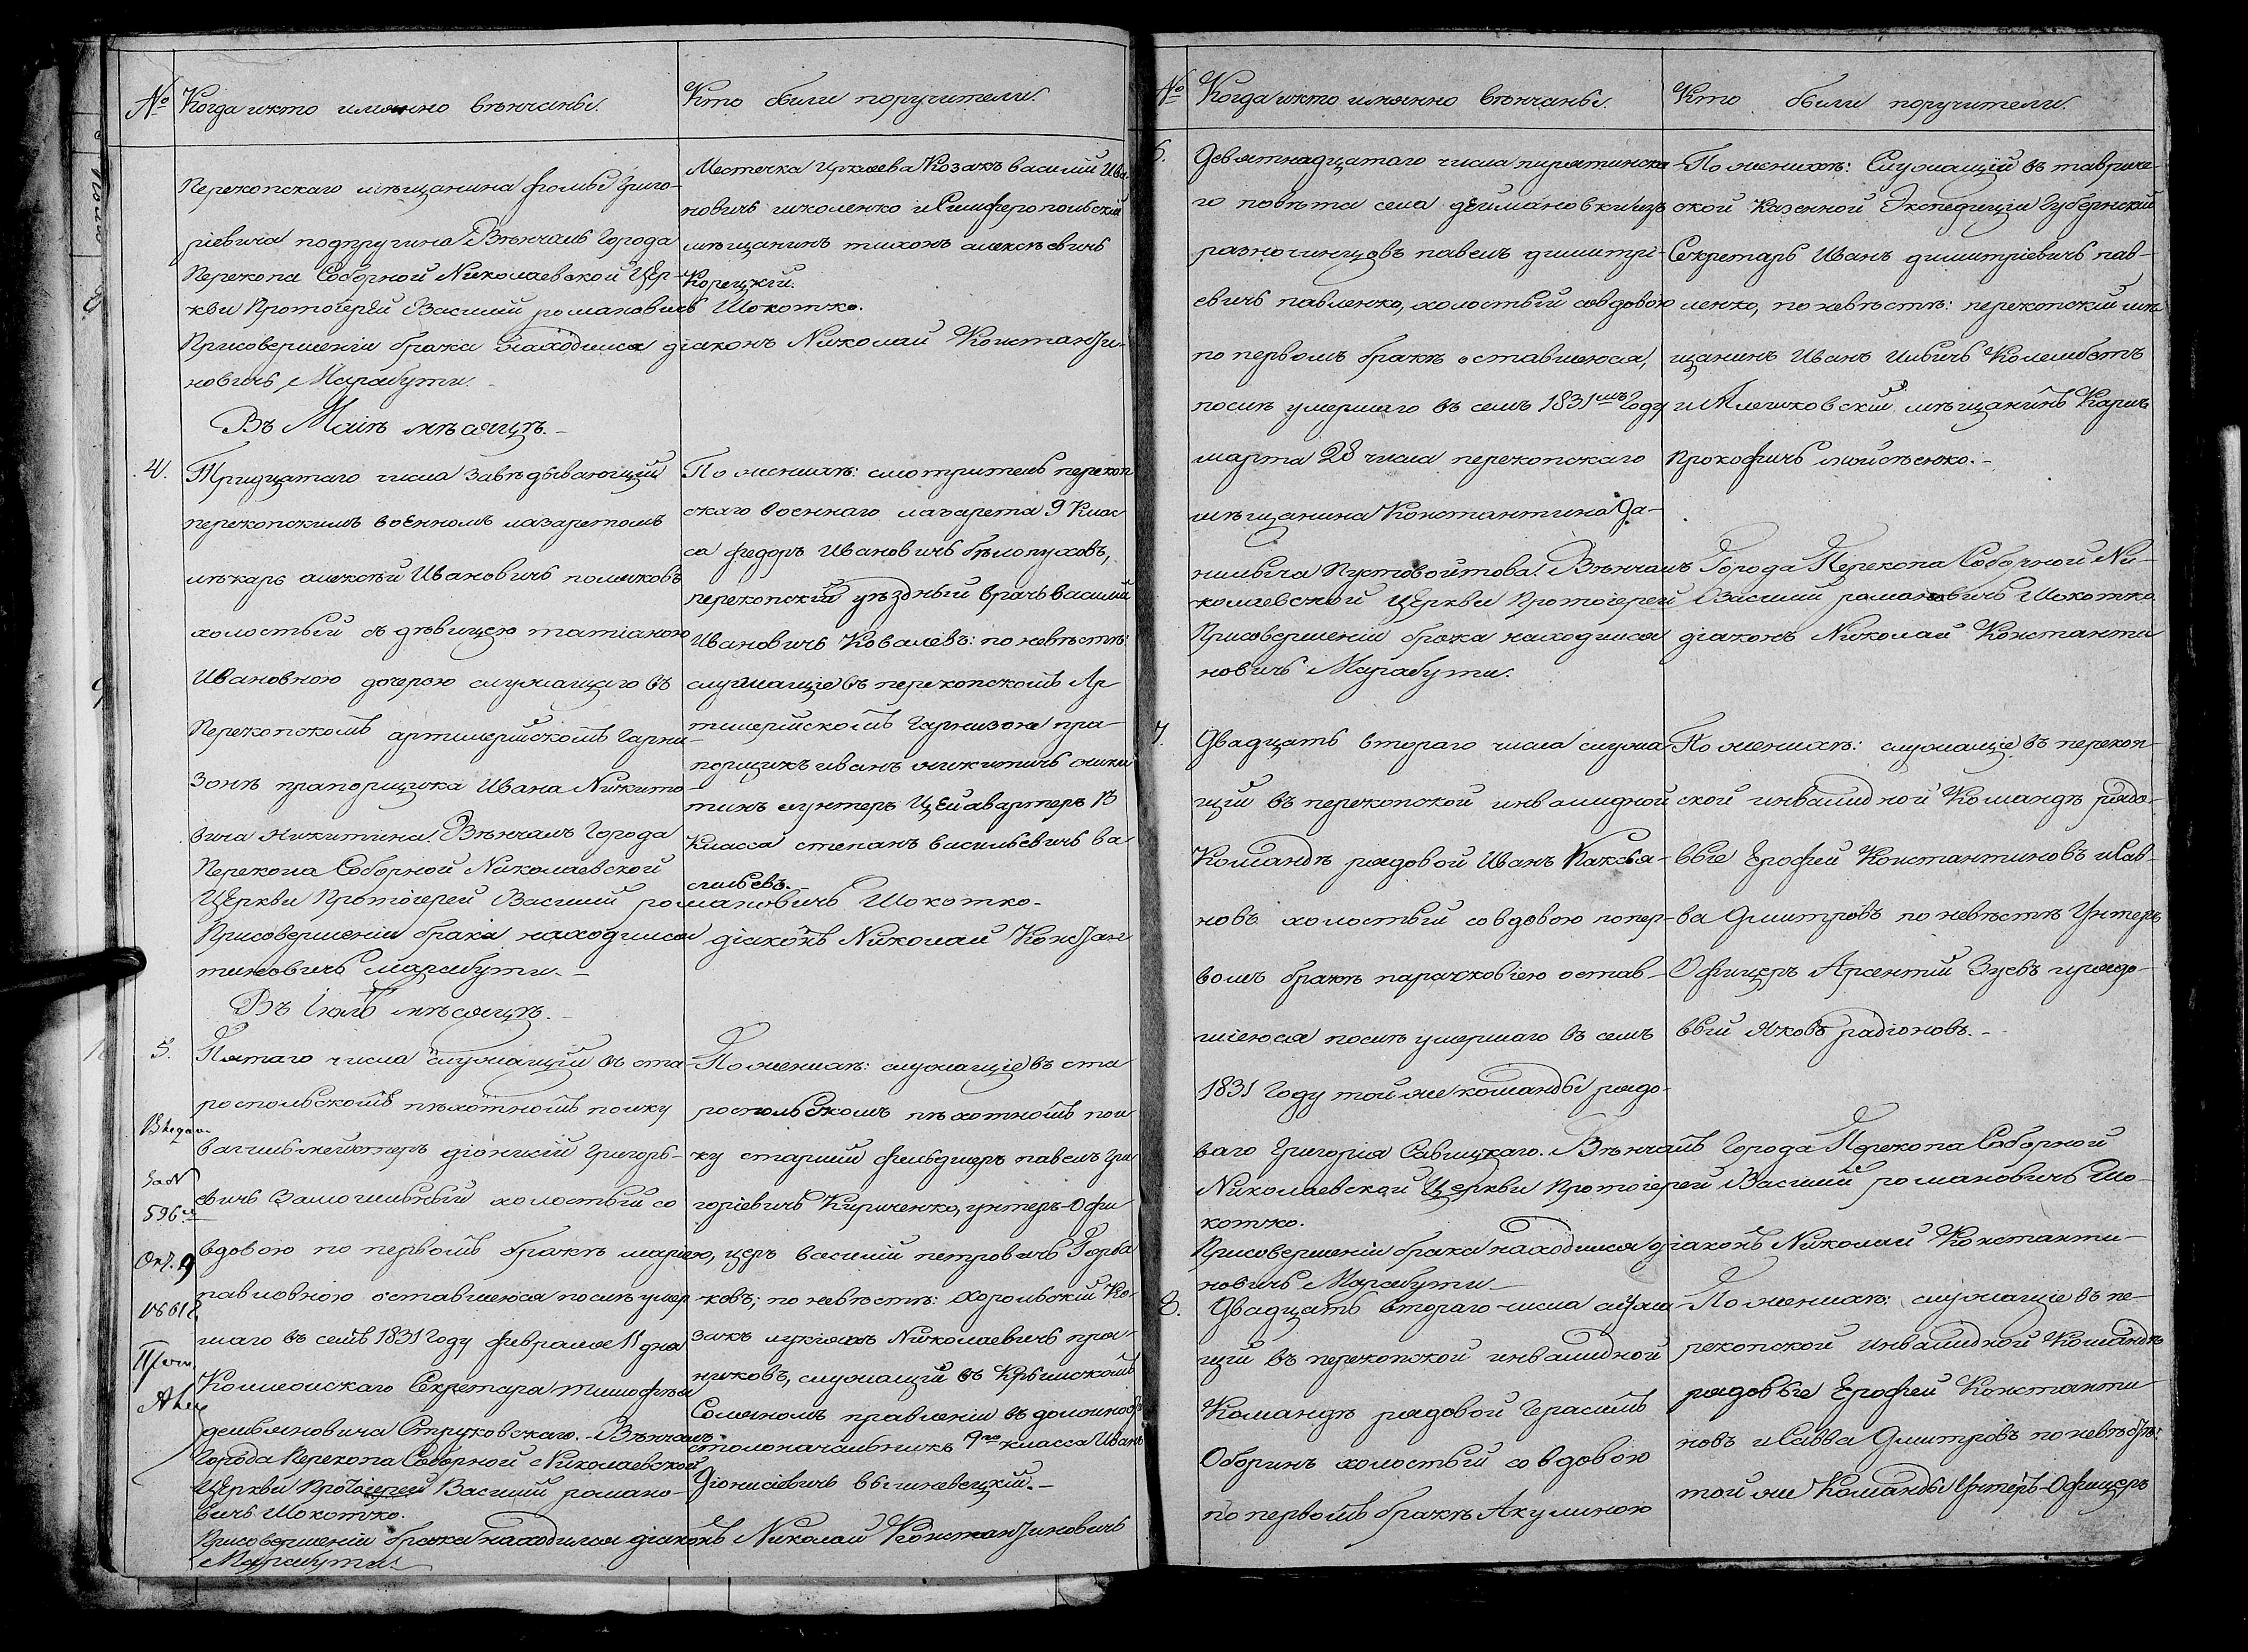 №
Когда и кто имянно венчаны.
Кто были поручители.
Перекопскаго мѣщанина Фомы Григо-
ріевича подпругина. Вѣнчалъ Города
Перекопа Соборной Николаевской Цер-
кви Протоіерей Василий романовичь Шокотко.
При совершеніи брака находился діаконъ Николай Константи-
новичь Марабути.
Местечка Иркліева Козакъ василий Ива-
новичь школенко и Симферопольский
мѣщанинъ тихонъ алексѣевичь
Корецкій.
Въ Маіѣ мѣсяцѣ.
4.
Тридцатаго числа завѣдывающий
перекопскимъ военномъ лазаретомъ
лѣкарь алексѣй Ивановичь поляковъ
холостый съ дѣвицею татіаною
Ивановною дочерою служащаго въ
Перекопскомъ артилерийскомъ Гарни-
зонѣ прапорщика Ивана Никито-
вича никитина. Вѣнчалъ Города
Перекопа Соборной Николаевской
Церкви Протоіерей Василий романовичь Шокотко.
При совершеніи брака находился діаконъ Николай Констан
тиновичь марабути.
По женихѣ: смотритель перекоп
скаго военнаго лазарета 9 Клас
са федоръ Ивановичь бѣлопуховъ,
перекопский уѣздный врачь василий
Ивановичь Ковалевъ: по невѣстѣ:
служащіе въ перекопскомъ Ар
тилерийскомъ Гарнизоне пра-
порщикъ иванъ никитичь ники
тинъ и унтеръ Цейгвартеръ
Класса степанъ васильевичь ва
сильевъ.
Въ Іюлѣ мѣсяцѣ.
5.
Пятаго числа служащий въ ста-
роспольскомъ пѣхотномъ полку
вагнмъмейстеръ діонисий Григорь-
евичь Замогильный холостый со
вдовою по первомъ бракѣ маріею,
павловною оставшеюся послѣ умер
шаго въ семъ 1831 Году февраля 11 дня
Коллежскаго Секретаря тимофея
демьяновича Струковскаго. Вѣнчалъ
Города Перекопа Соборной Николаевской
Церкви Протоіерей Василий романо-
вичь Шокотко.
При совершеніи брака находился діаконъ Николай Константиновичь
Марабути.
По женихѣ: служащіе въ ста
роспольскомъ пѣхотномъ пол
ку старший фельдшеръ павелъ Гри
горіевичь Кириченко, унтеръ-Офи
церъ василий петровичь Горба
ковъ; по невѣстѣ: хорольский Ко-
закъ лукіянъ Николаевичь пря-
никовъ, служащий въ Крымскомъ
Соляномъ правленіи въ должности
столоначальникъ 9го класса Иванъ
Діонисіевичь
за №
596
Окт. 9
1861
№
Когда и кто имянно вѣнчаны.
Кто были поручители.
6.
Девятнадцатаго числа пирятинска-
го повѣта села деймановки изъ
разночинцовъ павелъ димитрі-
евичь павленко, холостый со вдовою
по первомъ бракѣ оставшеюся,
послѣ умершаго въ семъ 1831мъ Году
марта 28 числа перекопскаго
мѣщанина Константина Да-
нильича Пустовойтова. Вѣнчалъ Города Перекопа Соборной Ни-
колаевской Церкви Протоіерей Василий романовичь Шокотко.
При совершеніи брака находился діаконъ Николай Константи
новичь Марабути.
По женихѣ: Служащий въ тавриче
ской Казенной Экспедиціи Губернский
Секретарь Иванъ димитріевичь пав-
ленко, по невѣстѣ: перекопский мѣ
щанинъ Иванъ Ильичь Колембетъ
и Алешковский мѣщанинъ Карпъ
прокофичь мойсѣенко.
7.
Двадцать втораго числа служа
щий въ перекопской инвалидной
Командѣ рядовой Иванъ Каксья-
новъ холостый со вдовою по пер-
вомъ бракѣ парасковіею остав-
шіеюся послѣ умершаго въ семъ
1831 Году той же команды рядо-
ваго Григорія Савицкаго. Вѣнчалъ Города Перекопа Соборной
Николаевской Церкви Протоіерей Василий романовичь Шо-
котко.
При совершеніи брака находился діаконъ Николай Константи-
новичь Марабути
По женихѣ: служащіе въ перекоп-
ской инвалидной Командѣ рядо-
выіе Ерофей Константиновъ и Сав-
ва Дмитровъ по невѣстѣ Унтеръ
Офицеръ Арсентий Зуевъ и рядо-
вый Яковъ радіоновъ.
8.
Двадцать втораго числа служа
щий въ перекопской инвалидной
Командѣ рядовой Герасимъ
Оборинъ холостый со вдовою
по первомъ бракѣ Акулиною
По женихѣ: служащіе въ пе-
рекопской инвалидной Командѣ
рядовыіе Ерофей Константи
новъ и Савва Дмитровъ по невѣстѣ:
той же Команды Унтеръ-Офицеръ